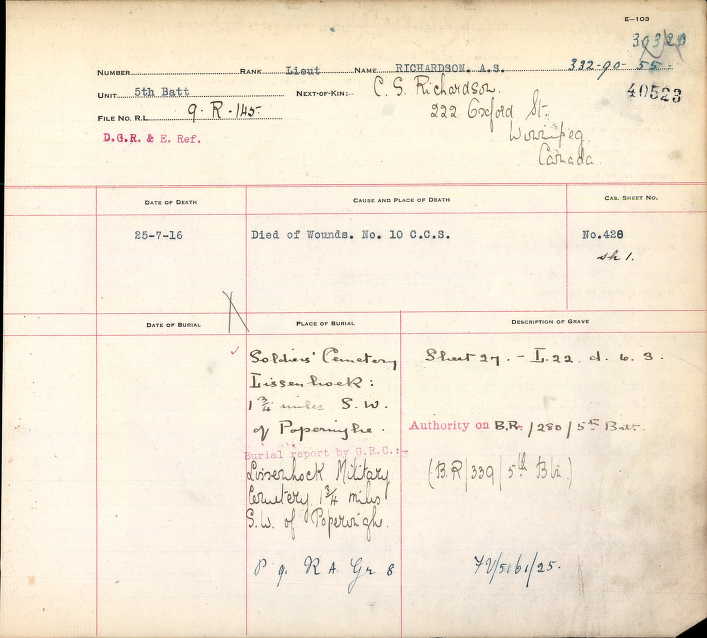 E—103
NUMBER RANK Lieut NAME RICHARDSON. A.S. 332-90- 55-
UNIT 5th Batt NEXT-OF-KIN:- C. S. Richardson. 40523
FILE NO. R.L. 9. R. 145. 222 Oxford St.,
D.G.R. & E. Ref. Winnipeg
Canada
DATE OF DEATH CAUSE AND PLACE OF DEATH CAS. SHEET NO.
25-7-16 Died of Wounds. No. 10 C.C.S. No.428
sh 1.
DATE OF BURIAL PLACE OF BURIAL DESCRIPTION OF GRAVE
Soldiers' Cemetery Sheet 27. - L. 22. d. 6. 3.
Lissenhock:
1 3/4 miles S.W.
of Poperinghe. Authority on B.R. / 280 / 5th Batt.
Burial report by G.R.C.:-
Lissenhock Military (B.R/339/5th Bn)
Cemetery 1 3/4 miles
S.W. of Poperingh.
P 9. R A Gr 8